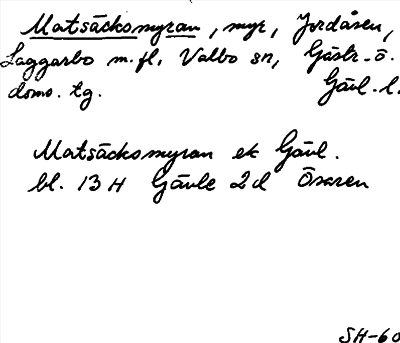 Matsäcksmyran, myr, Jordåsen,
Laggarbo m.fl. Valbo sn, Gästr.-ö.
doms. tg. Gävl. l.
Matsäcksmyran ek Gävl.
bl. 13 H Gävle 2d Ösaren
SH-60